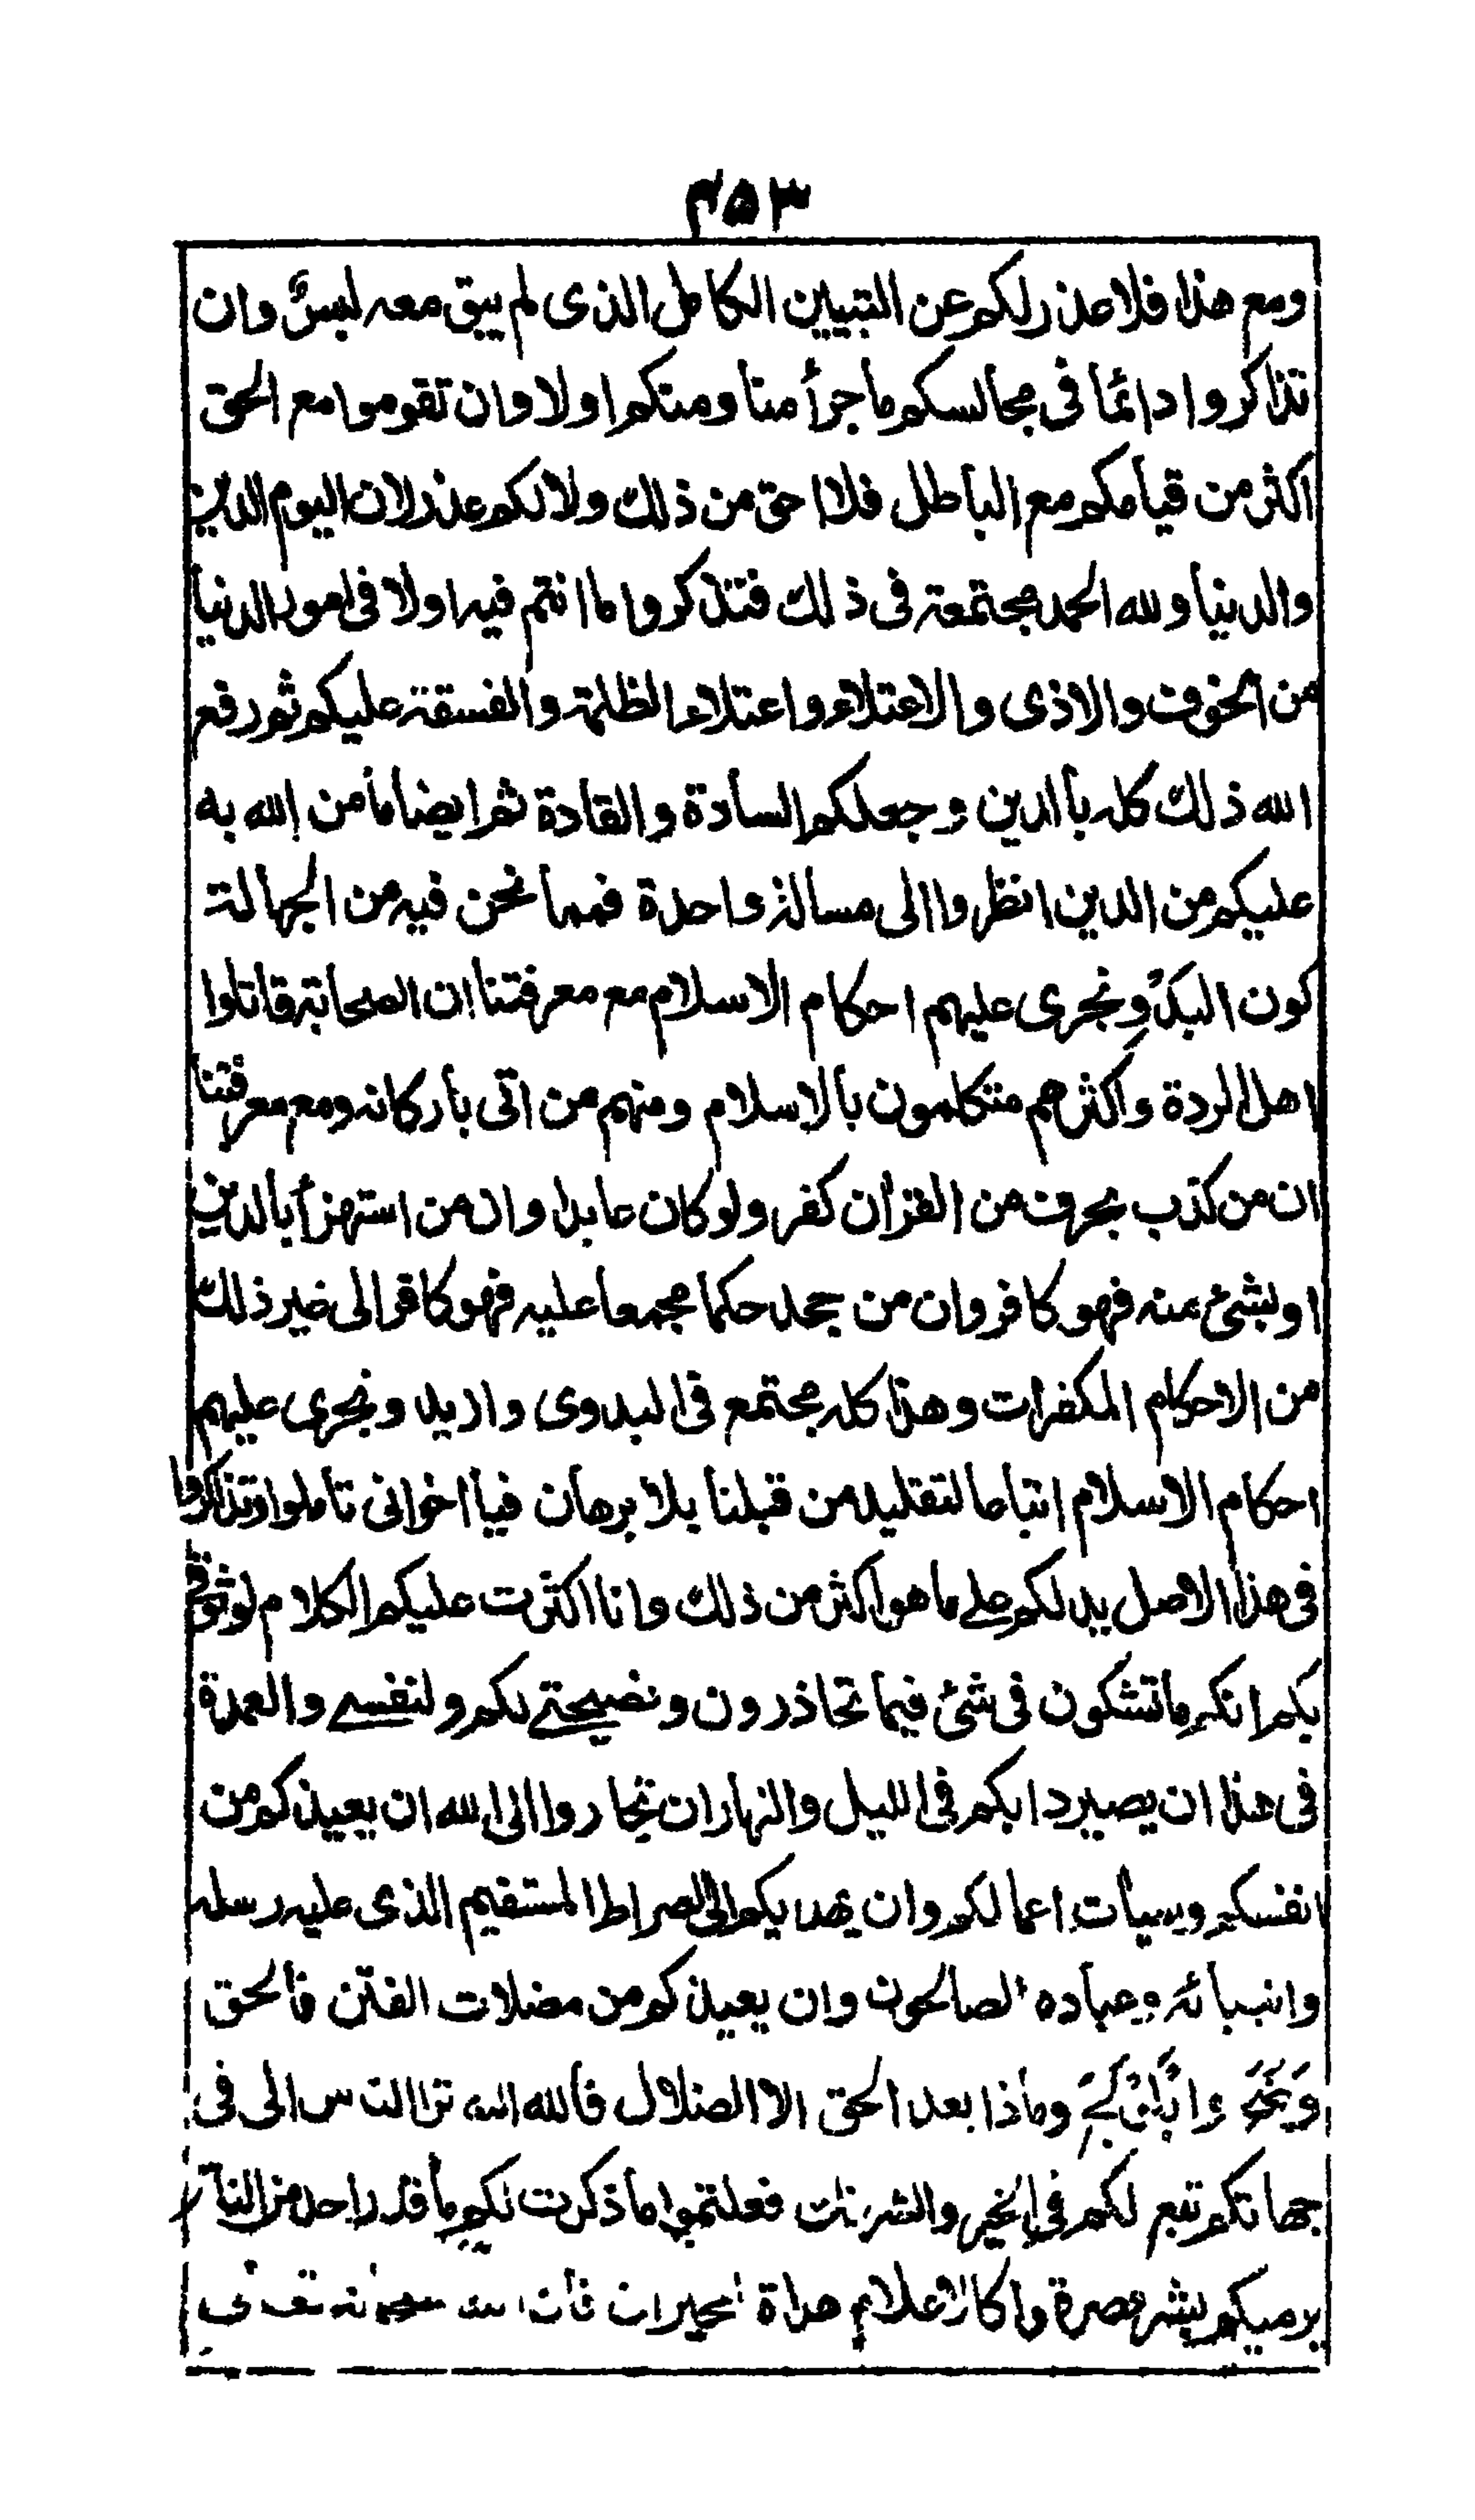 ٣٥٣
ومع هذا فلا عذر لكم عن التبيين الكامل الذى لم يبق معه لبس وان
تذاكروا دائما فى مجالسكم ما جرأ منا ومنكم اولا وان تقوموا مع الحق
اكثر من قيامكم مع الباطل فلا احق من ذلك ولا لكم عذر لان اليوم الدين
والدنيا ولله الحمد مجتمعة فى ذلك فتذكروا ما انتم فيه اولا فى امور الدنيا
من الخوف والاذى والاعتلاء واعتلاء الظلمة والفسقة عليكم ثم رفع
الله ذلك كله بالدين وجعلكم السادة والقادة ثم ايضا ما من الله به
عليكم من الدين انظروا الى مسالة واحدة فمما نحن فيه من الجهالة
كون البدو نجرى عليهم احكام الاسلام مع معرفتنا ان الصحابة قاتلوا
اهل الردة واكثرهم متكلمون بالاسلام ومنهم من اتى باركانه ومع معرفتنا
ان من كذب بحرف من القران كفر ولو كان عابدا وان من استهزأ بالدين
او بشئ منه فهو كافر وان من جحد حكما مجمعا عليه فهو كافر الى غير ذلك
من الاحكام المكفرات وهذا كله مجتمع فى البدوى وازيد ونجرى عليهم
احكام الاسلام اتباعا لتقليد من قبلنا بلا برهان فيا اخوانى تاملوا وتذاكروا
فى هذا الاصل يدلكم على ما هو اكثر من ذلك وانا اكثرت عليكم الكلام لوثوقى
بكم انكم ما تشكون فى شئ فيما تحاذرون ونصيحتى لكم ولنفسى والعمدة
فى هذا ان يصير دابكم فى الليل والنهار ان تجاروا الى الله ان يعيذكم من
انفسكم وسيأت اعمالكم وان يهديكم الى الصراط المستقيم الذى عليه رسله
وانبيائه وعباده الصالحون وان يعيذكم من مضلات الفتن فالحق
وماذا بعد الحق الا الضلال فالله الله الناس الى فى
جهاتكم تبع لكم فى الخير والشر فعلتموا ما ذكرت لكم ما قدر احد من الناس
يرميكم بشر